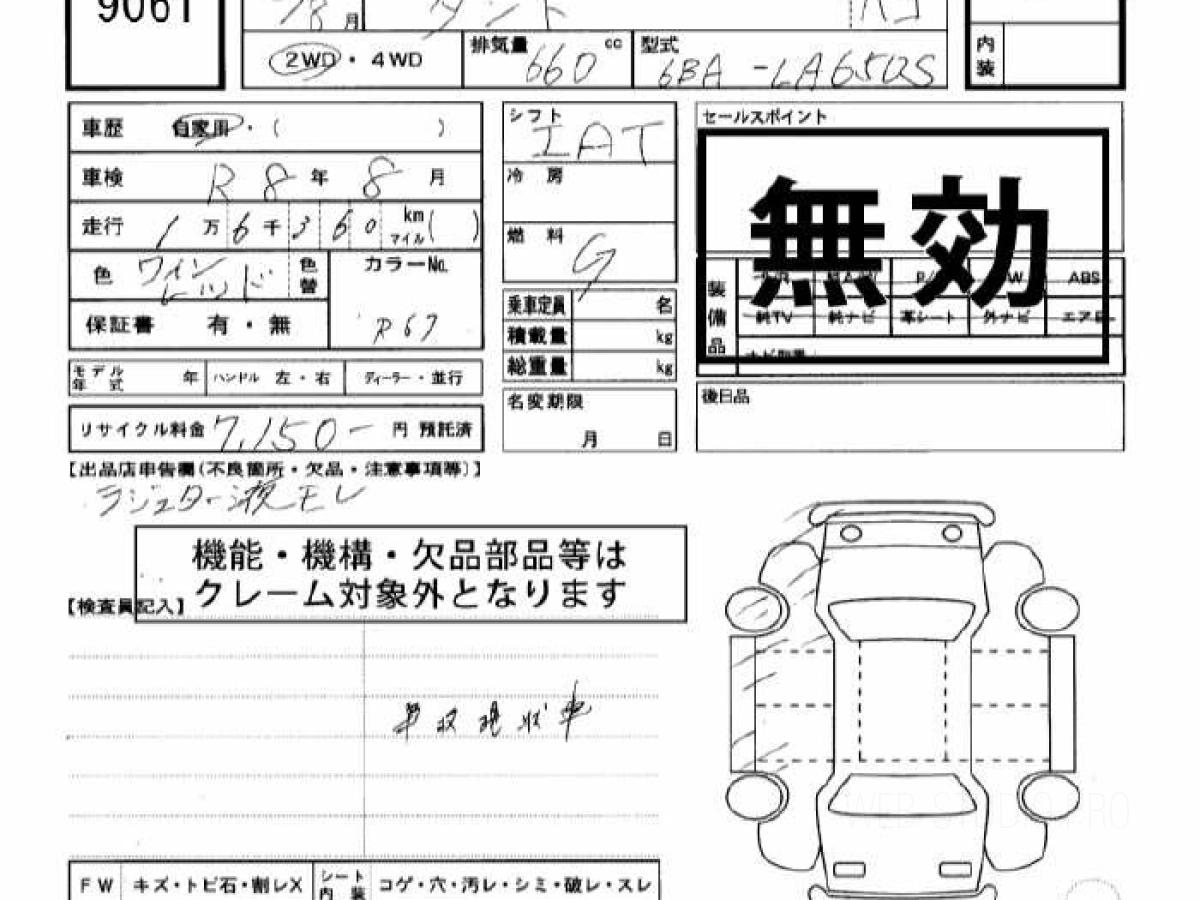 9061
月 タント
2WD・4WD 排気量 660 cc 型式 6BA-LA650S
内装
車歴 自家用・( )
車検 R8年 8月
走行 1万6千360 km マイル( )
色 ワインレッド 色替 カラーNo. R67
保証書 有・無
モデル年式 年 ハンドル 左・右 ディーラー・並行
リサイクル料金 7,150- 円 預託済
シフト IAT
冷房
燃料 G
乗車定員 名
積載量 kg
総重量 kg
名変期限
月 日
セールスポイント
無効
装備品 ABS
純TV 純ナビ 革シート 外ナビ
後日品
【出品店申告欄(不良箇所・欠品・注意事項等)】
ラジエター液モレ
機能・機構・欠品部品等は
クレーム対象外となります
【検査員記入】
現状車
WEB STUDIO PRO
FW キズ・トビ石・割レX シート内装 コゲ・穴・汚レ・シミ・破レ・スレ